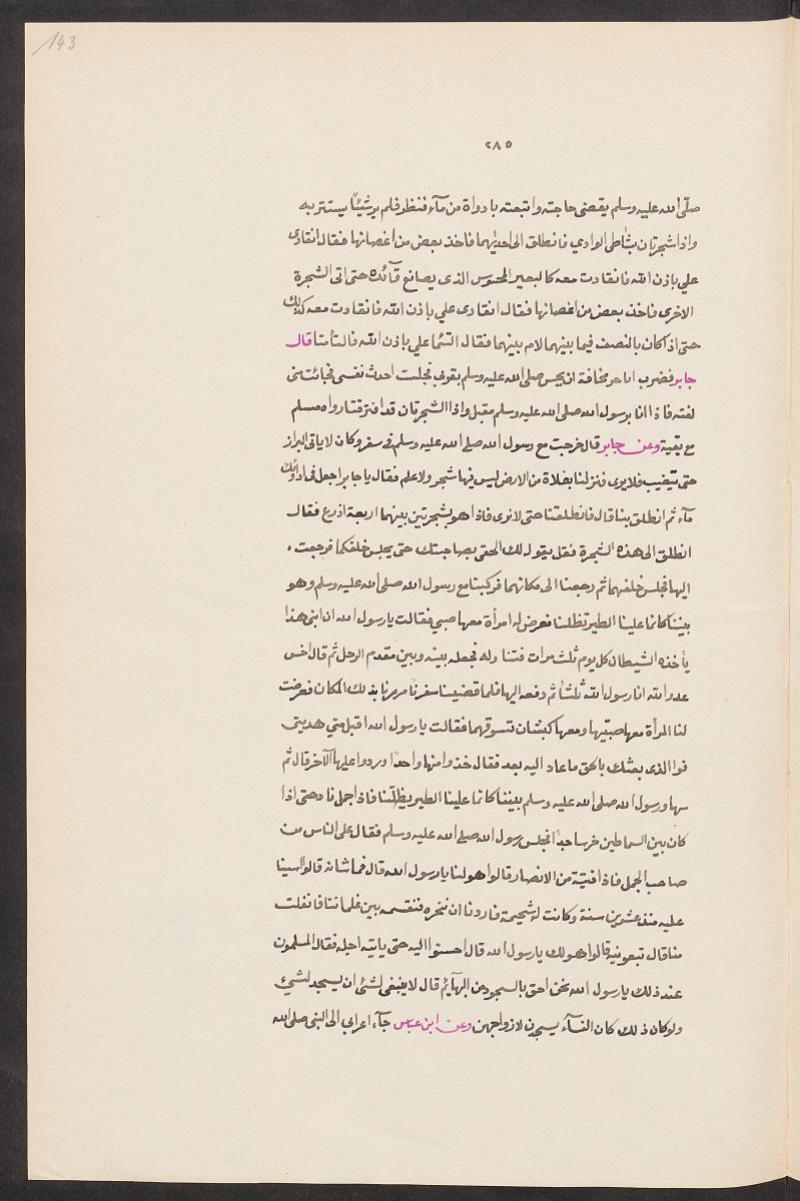 143
٢٨٥
صلّى الله عليه وسلم يقضى حاجته واتبعته باداوة من مآء فنظر فلم ير شيئًا يستتر به
واذا شجرتان بشاطى الوادي فانطلق الى احديهما فاخذ بعض من اغصانها فقال انقادى
علي باذن الله فانقادت معه كالبعير المخسوس الذى يصانع قآئده حتى اتى الشجرة
الاخرى فاخذ بعض من اغصانها فقال انقادى علي باذن الله فانقادت معه كذلك
حتى اذا كان بالنصف فيما بينهما لام بينهما فقال التئما علي باذن الله فالتأمتا قال
جابر فضرب انا احر مخافة ان يحس صلى الله عليه وسلم بقوبى فجلست احدث نفسى فجائت منى
لفته فاذا انا برسول الله صلى الله عليه وسلم مقبل واذا الشجرتان قد افترقتا رواه مسلم
مع بقية وعن جابر قال خرجت مع رسول الله صلى الله عليه وسلم فى سفر وكان لا ياتى البراز
حتى يتغيب فلا يرى فنزلنا بفلاة من الارض ليس فيها شجر ولا علم فقال يا جابر اجعل فى اداوتك
مآء ثم انطلق بنا قال فانطلقنا حتى لا نرى فاذا هو بشجرتين بينهما اربعة اذرع فقال
انطلق الى هذه الشجرة فقل يقول لك الحقى بصاحبتك حتى يجلس خلفكما فرجعت
اليها فجلس خلفهما ثم رجعنا الى مكانهما فركبنا مع رسول الله صلى الله عليه وسلم وهو
بيننا كانما علينا الطير تظلنا فعرض له امرأة معها صبي فقالت يا رسول الله ان ابنى هذا
يأخذه الشيطان كل يوم ثلث مرات فتناوله فجعله بينه وبين مقدم الرحل ثم قال اخس
عدو الله انا رسول الله ثلثًا ثم دفعه اليها فلما قضينا سفرنا مررنا بذلك المكان فعرضت
لنا المرأة معها صبيّها ومعها كبشان تسوقهما فقالت يا رسول الله اقبل مني هديتى
فوا الذى بعثك بالحق ما عاد اليه بعد فقال خذوا منها واحدًا وردوا عليها الآخر قال ثم
سرنا ورسول الله صلى الله عليه وسلم بيننا كانما علينا الطير يظلّنا فاذا جمل ناد حتى اذا
كان بين السماطين خر ساجدًا فجلس رسول الله صلى الله عليه وسلم فقال على الناس من
صاحب الجمل فاذا فتية من الانصار قالوا هو لنا يا رسول الله قال فما شانه قالوا سينا
عليه منذ عشرين سنة وكانت له شحيمة فاردنا ان ننحره فنقسمه بين غلماننا فانفلت
منا قال تبيعونيه قالوا هو لك يا رسول الله قال احسنوا اليه حتى ياتيه اجله فقال المسلمون
عند ذلك يا رسول الله نحن احق بالسجود من البهآئم قال لا ينبغى لشئ ان يسجد لشيء
ولو كان ذلك كان النسآء يسجدن لازواجهن وعن ابن عباس جآء اعرابي الى النبى صلى الله